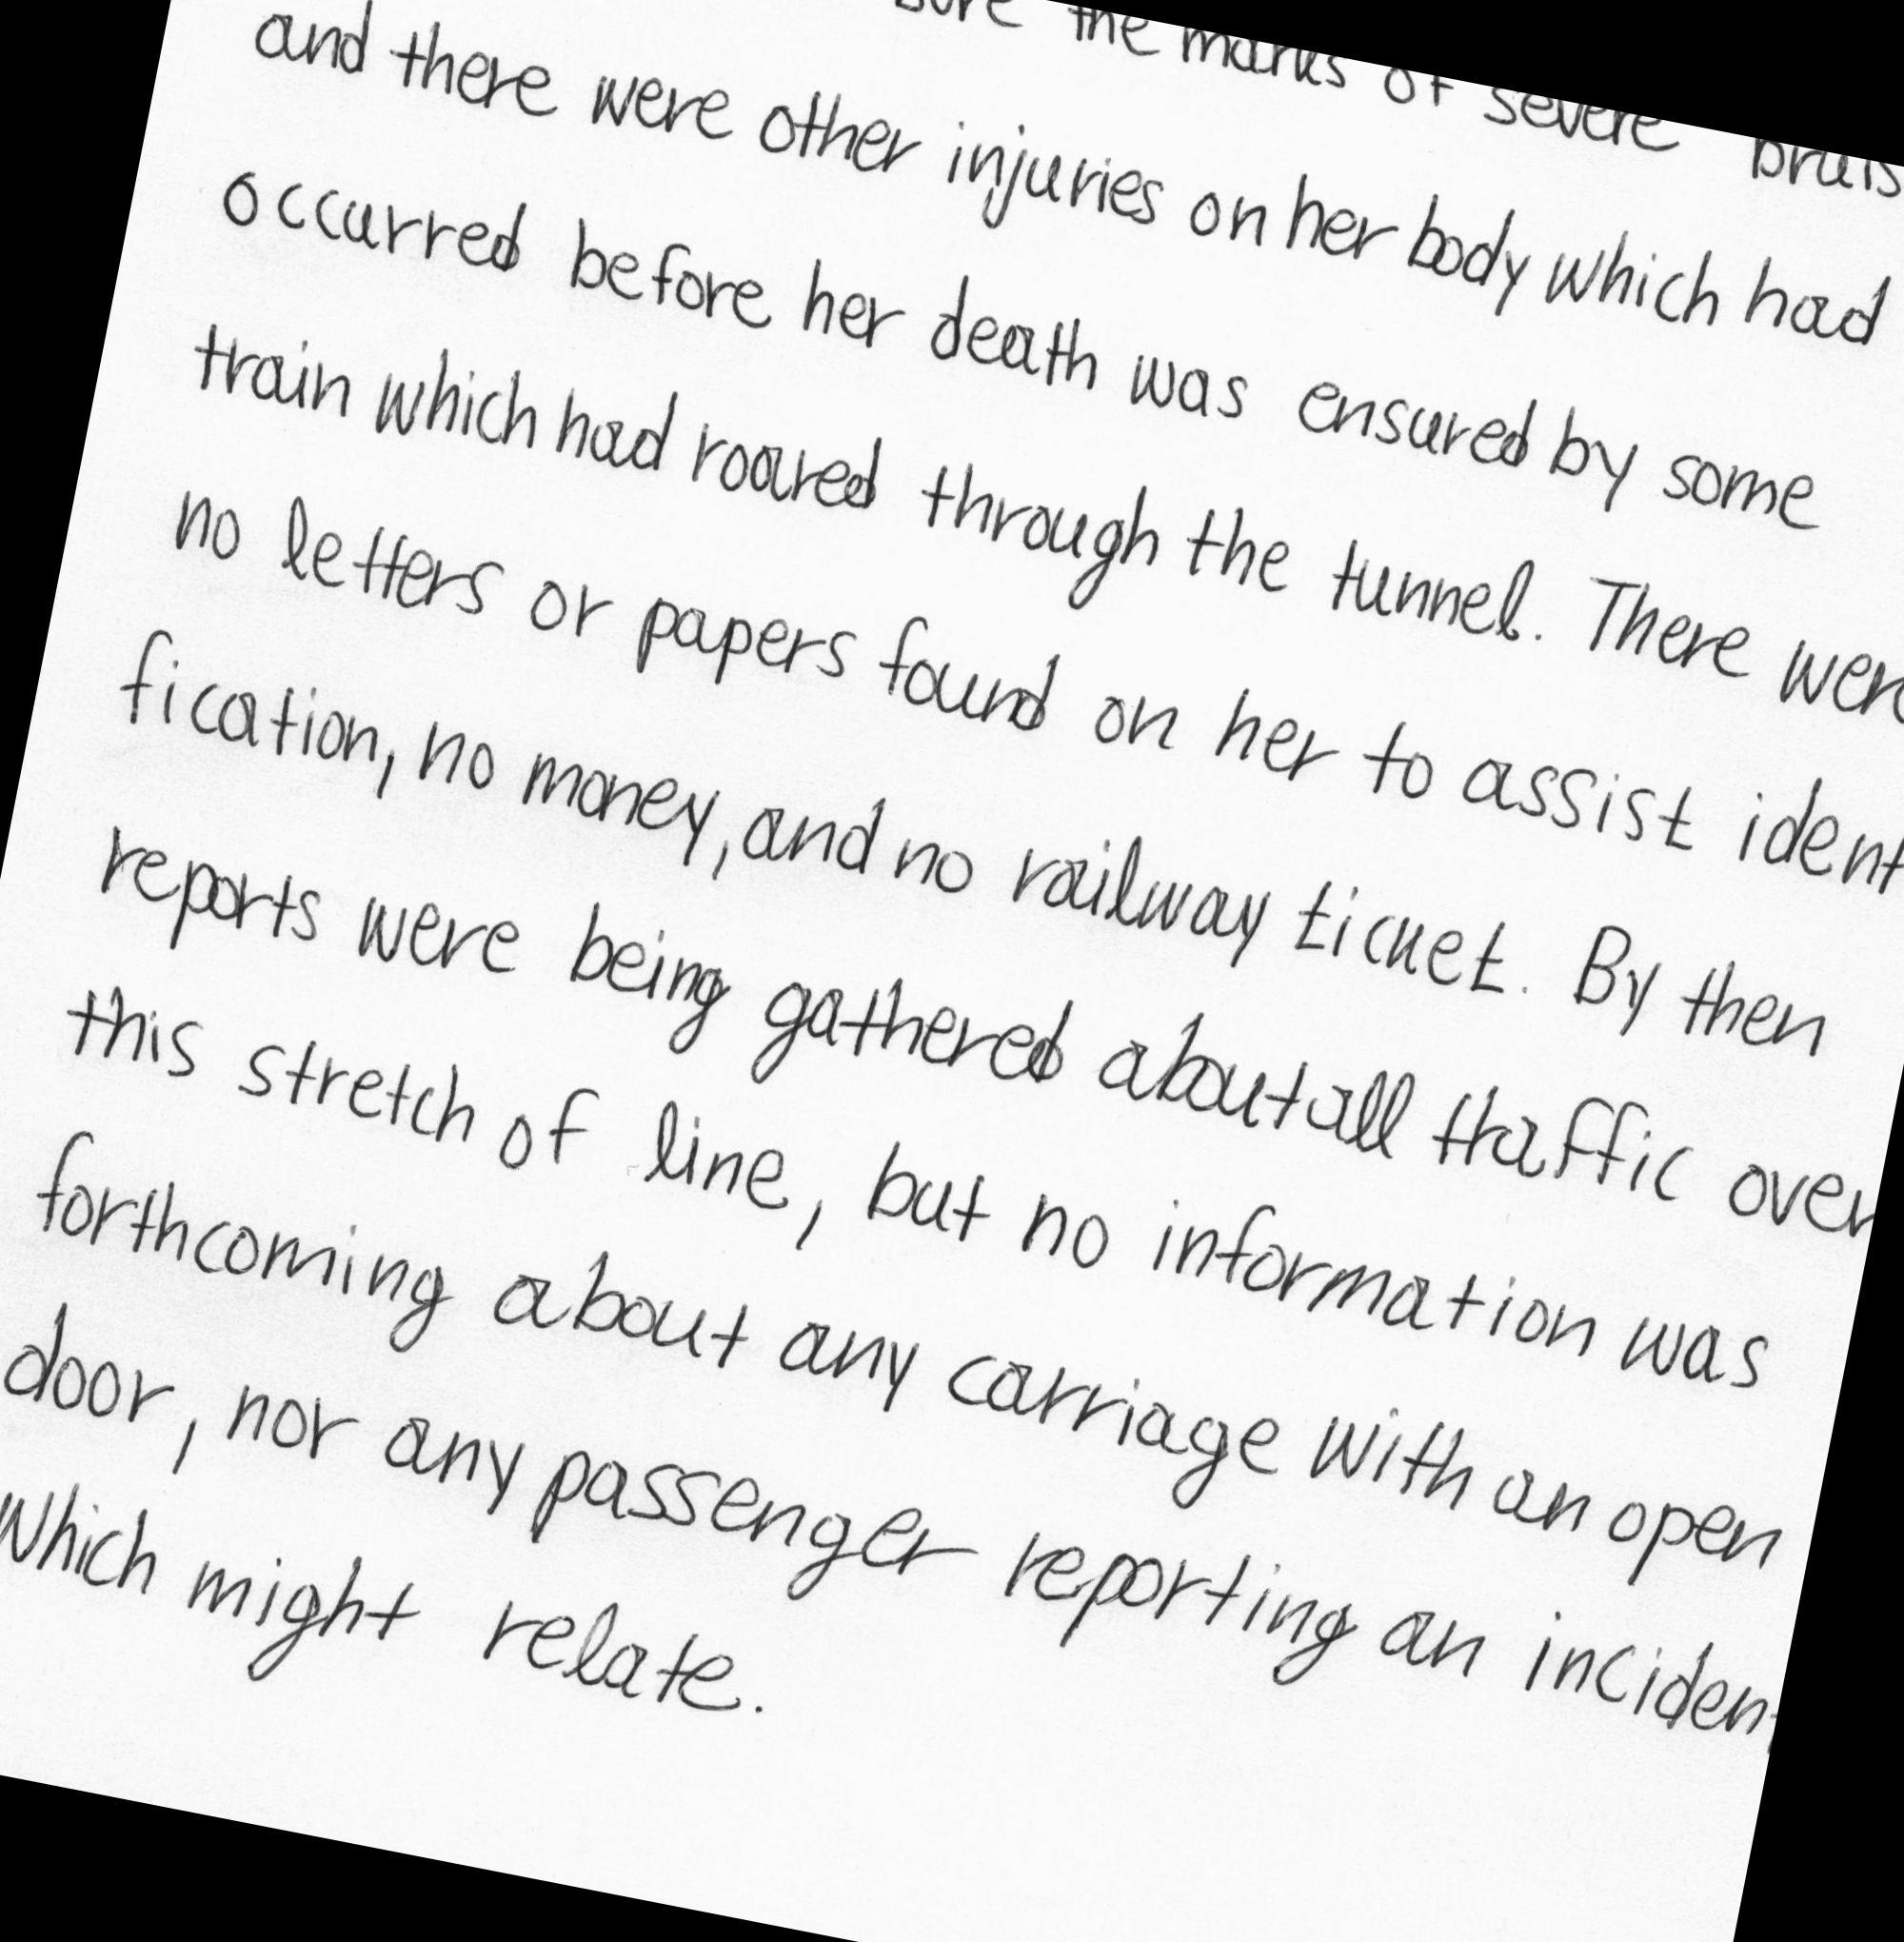 the marks of severe
and there were other injuries on her body which had
occurred before her death was ensured by some
train which had roared through the tunnel. There were
no letters or papers found on her to assist ident
fication, no money, and no railway ticket. By then
reports were being gathered about all traffic over
this stretch of line, but no information was
forthcoming about any carriage with an open
door, nor any passenger reporting an incident
which might relate.